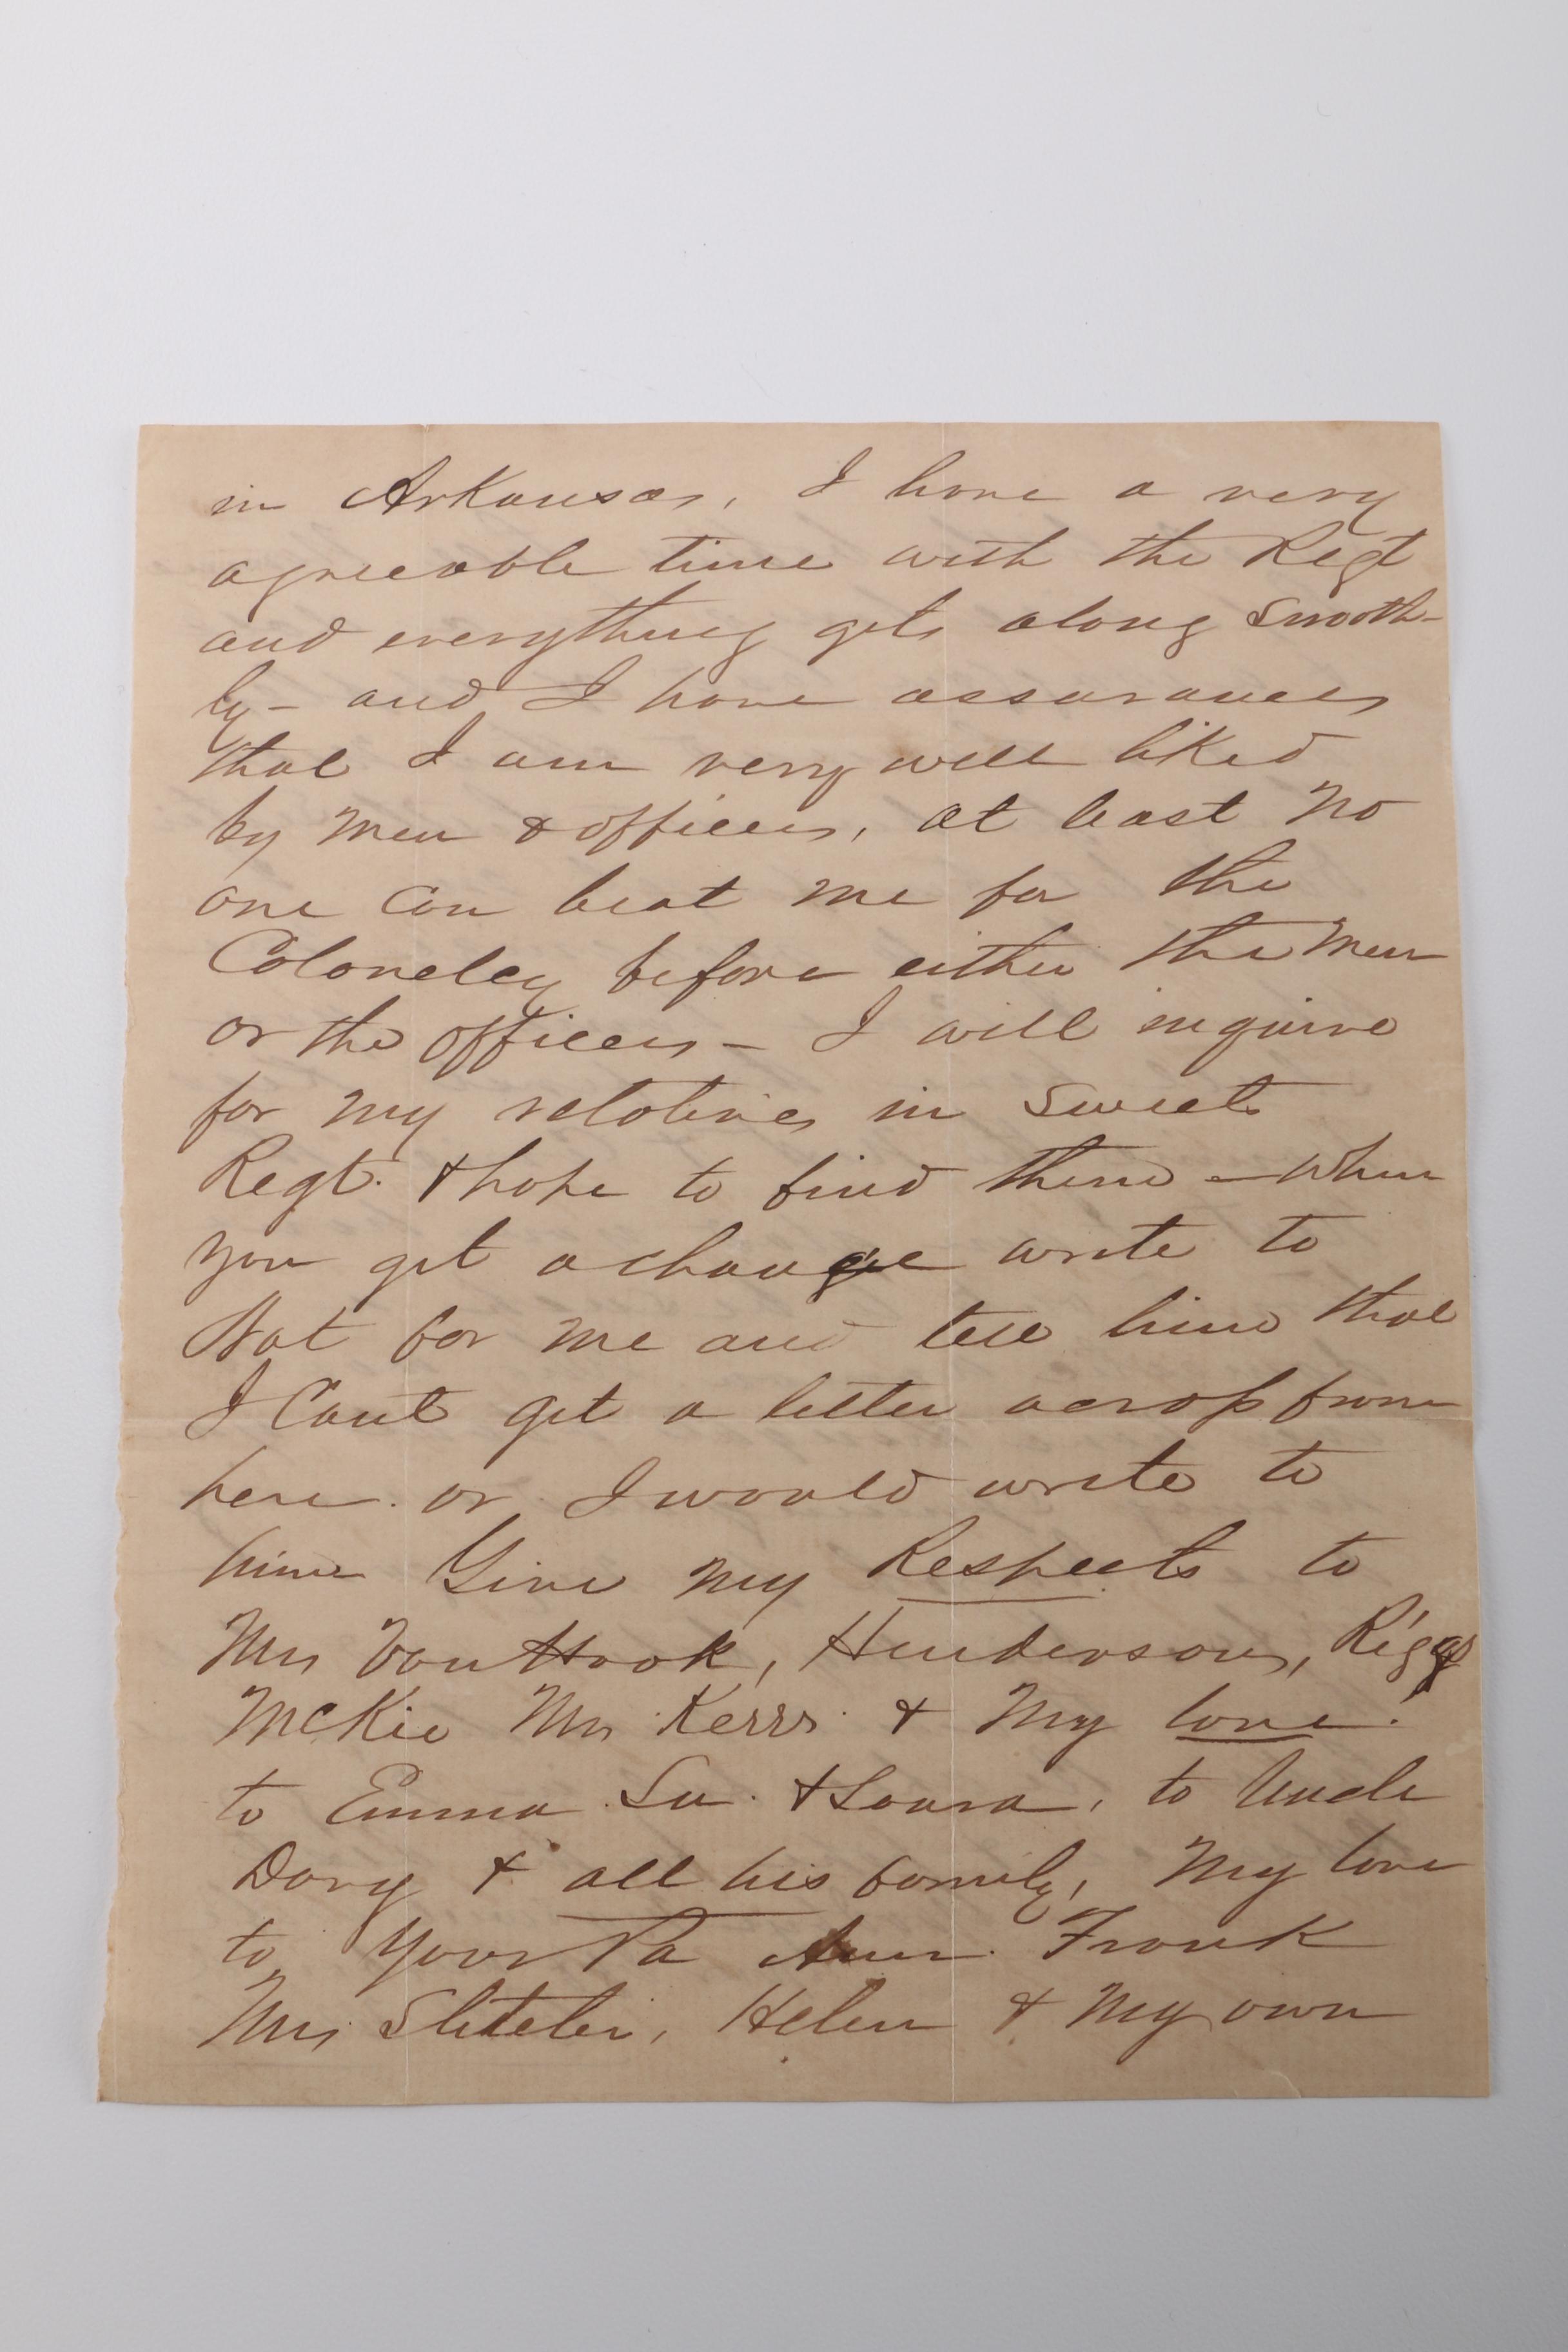 in Arkansas, I have a very
agreeable time with the Regt
and everything gets along smooth-
ly - and I have assurances
that I am very well liked
by men & officers, at least no
one can beat me for the
Colonelcy before either the men
or the officers - I will inquire
for my relatives in Sweets
Regt. & hope to find them - when
you get a change write to
Nat for me and tell him that
I Cant get a letter across from
here. or I would write to
him Give my Respects to
Mrs VanHook, Henderson, Riggs
McKie Mrs Kerr & my love.
to Emma Su. & Laura, to Uncle
Dory & all his family, My love
to your Pa Ann. Frank
Mrs Helen & my own